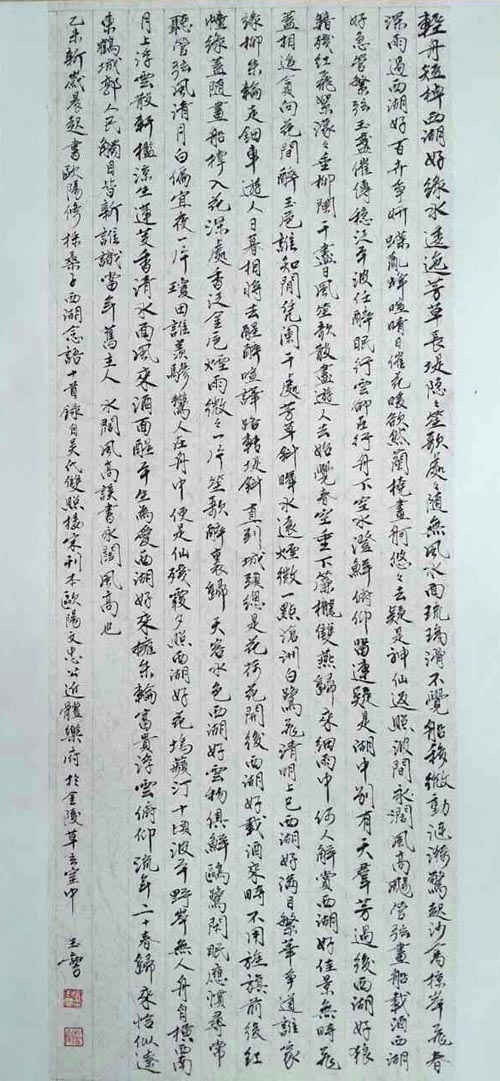 輕舟短棹西湖好綠水逶迤芳草長堤隱々笙歌處々隨無風水面琉璃滑不覺船移微動漣漪驚起沙禽掠岸飛春
深雨過西湖好百卉爭妍蝶亂蜂喧晴日催花暖欲然蘭橈畫舸悠々去疑是神仙返照波間永闊風高颺管弦畫船載酒西湖
好急管繁弦玉盞催傳穩泛平波任醉眠行雲卻在行舟下空水澄鮮俯仰留連疑是湖中別有天羣芳過後西湖好狼
籍殘紅飛絮濛々垂柳闌干盡日風笙歌散盡遊人去始覺春空垂下簾櫳雙燕歸來細雨中何人解賞西湖好佳景無時飛
蓋相追貪向花間醉玉卮誰知閒凭闌干處芳草斜暉水遠煙微一點滄洲白鷺飛清明上巳西湖好滿目繁華爭道誰家
綠柳朱輪走鈿車遊人日暮相將去醒醉喧譁路轉堤斜直到城頭總是花荷花開後西湖好載酒來時不用旌旗前後紅
幢綠蓋隨畫船撐入花深處香泛金卮煙雨微々一片笙歌醉裏歸天容水色西湖好雲物俱鮮鷗鷺閒眠應慣尋常
聽管弦風清月白偏宜夜一片瓊田誰羨驂鸞人在舟中便是仙殘霞夕照西湖好花塢蘋汀十頃波平野岸無人舟自橫西南
月上浮雲散軒檻涼生蓮芰香清水面風來酒面醒平生為愛西湖好來擁朱輪富貴浮雲俯仰流年二十春歸來恰似遼
東鶴城郭人民觸目皆新誰識當年舊主人 水闊風高誤書永闊風高也
乙未新歲晨起書歐陽修採桑子西湖念語十首錄自吳氏雙照樓宋刊本歐陽文忠公近體樂府於金陵草玄室中 王